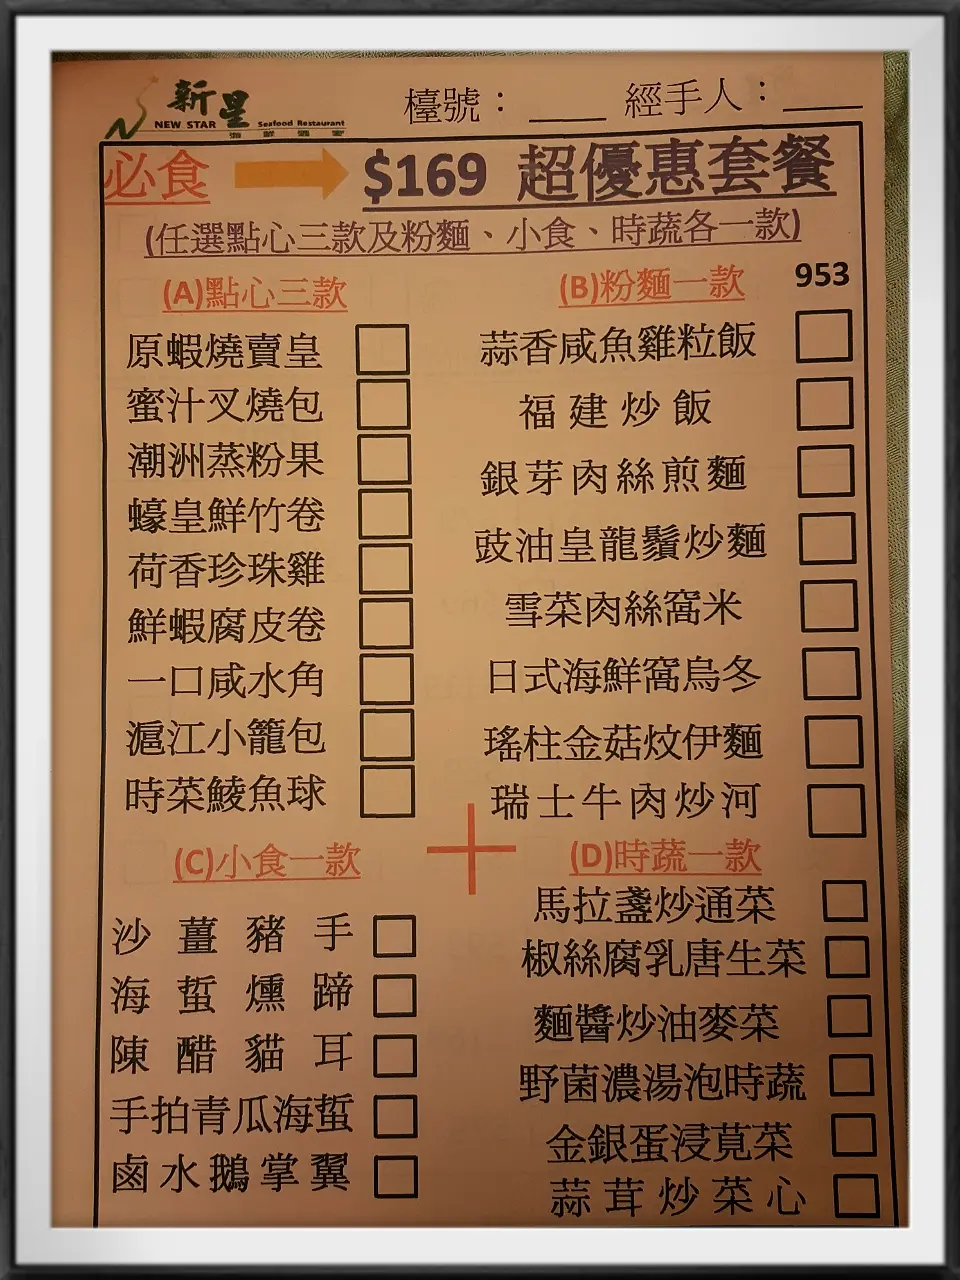 新星
NEW STAR Seafood Restaurant
海鮮酒家
檯號：____ 經手人：____
必食 $169 超優惠套餐
(任選點心三款及粉麵、小食、時蔬各一款)
(A)點心三款
原蝦燒賣皇
蜜汁叉燒包
潮洲蒸粉果
蠔皇鮮竹卷
荷香珍珠雞
鮮蝦腐皮卷
一口咸水角
滬江小籠包
時菜鯪魚球
(B)粉麵一款 953
蒜香咸魚雞粒飯
福建炒飯
銀芽肉絲煎麵
豉油皇龍鬚炒麵
雪菜肉絲窩米
日式海鮮窩烏冬
瑤柱金菇炆伊麵
瑞士牛肉炒河
(C)小食一款
沙薑豬手
海蜇燻蹄
陳醋貓耳
手拍青瓜海蜇
鹵水鵝掌翼
(D)時蔬一款
馬拉盞炒通菜
椒絲腐乳唐生菜
麵醬炒油麥菜
野菌濃湯泡時蔬
金銀蛋浸莧菜
蒜茸炒菜心